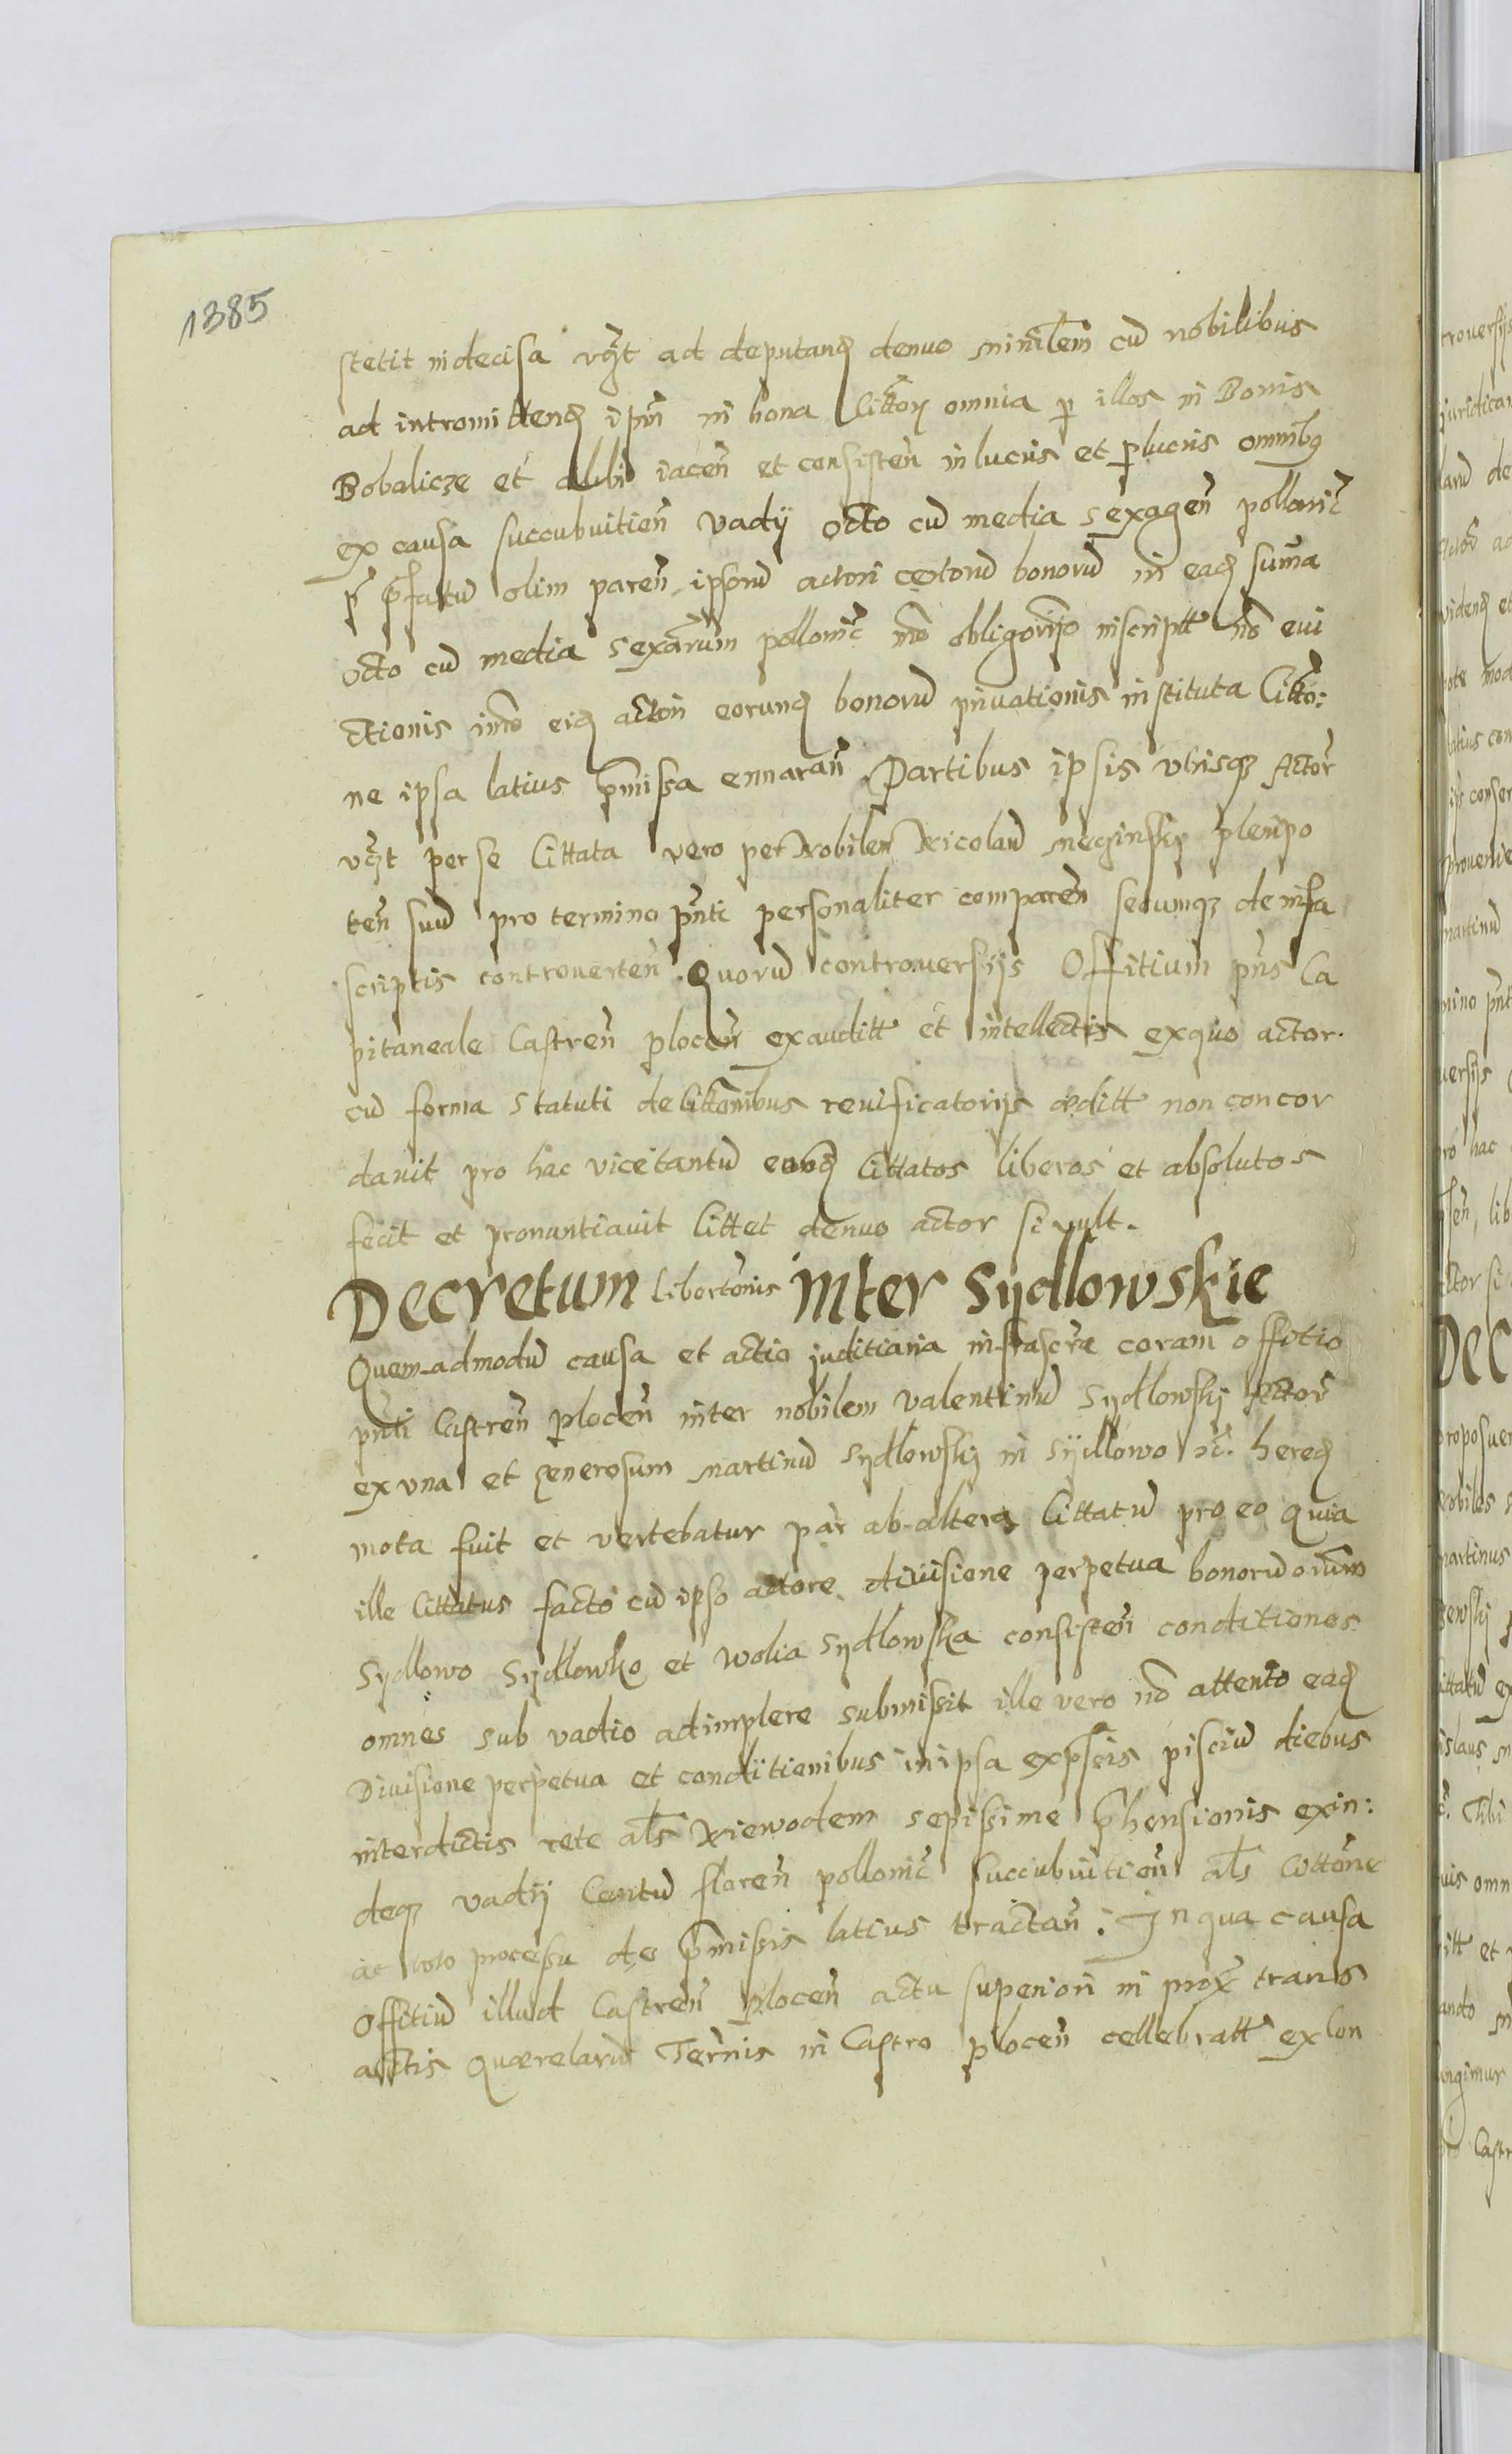 1385
stetit indecisa vzt ad deputand denuo minirlem cu nobilibus
ad intromittend ipm in bona Cittor omnia p illos in Bonis
Bobalicze et alibi iacen et consisten in lucris et plucris omnibq
ex causa succubuitien vadij octo cu media sexagen pollonic
p pfatu olim paren ipsoru actori certoru bonoru in ead suma
octo cu media sexarum pollonic mo obligorio inscriptt no eui
ctionis imo eid actori eorund bonoru priuationis instituta Citto:
ne ipsa latius pmissa ennaran Partibus ipsis vtrisqz Actor
vzt per se Cittata vero per Nobilem Nicolau Meginsky plenipo
ten suu pro termino pnti personaliter comparen secumqz de infra
scriptis controuerten. Quoru controuersijs Offitium pns Ca
pitaneale Castren plocen exauditt et intellectis exquo actor
cu forma Statuti de Cittonibus reuificatorijs edditt non concor
dauit pro hac vice tantu eosd Cittatos liberos et absolutos
fecit et pronuntiauit Cittet denuo actor si vult.
Decretum libertonis inter Sydlowskie
Quem admodu causa et actio juditiaria infrascra coram offitio
pnti Castren plocen inter nobilem Valentinu Sydlowsky Actor
ex vna et generosum Martinu Sydlowsky in Sydlowo etc. hered
mota fuit et vertebatur par ab altera Cittatu pro eo Quia
ille Cittatus facto cu ipso actore diuisione perpetua bonoru orum
Sydlowo Sydlowko et Wolia Sydlowska consisten conditiones
omnes sub vadio adimplere submissit ille vero no attento ead
Diuisione perpetua et conditionibus in ipsa expssis pisciu diebus
interdictis rete als Niewodem sepissime phensionis exin:
deqz vadij Centu floren pollonic succubuitien als Cittone
ac toto processu de pmissis latius tractan. In qua causa
Offitiu illud Castren plocen actu superiori in prox trans
actis Querelaru Termis in Castro plocen cellebratt ex con